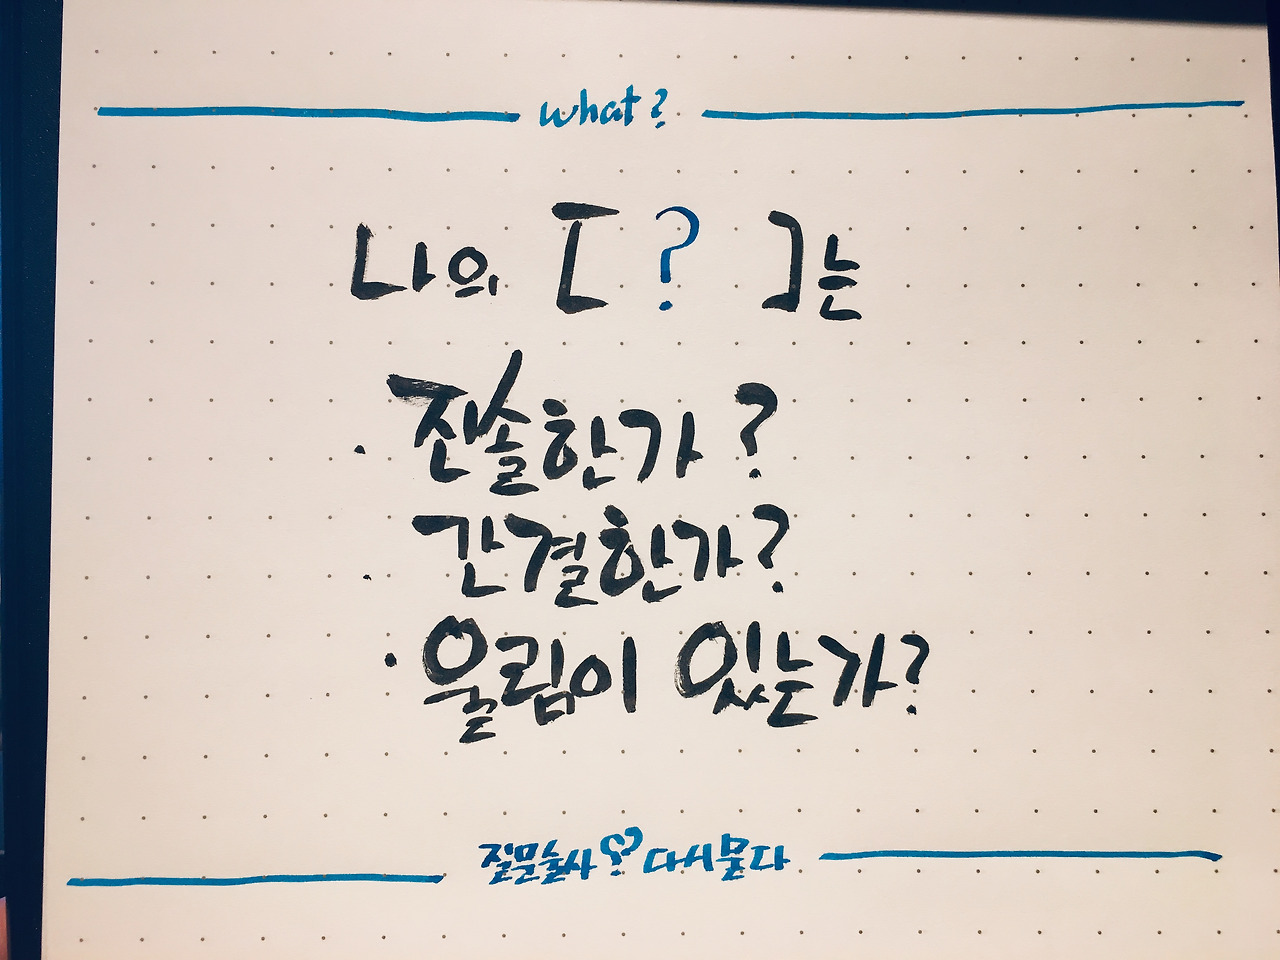 what?
나의 [ ? ]는
· 진솔한가?
· 간결한가?
· 울림이 있는가?
질문술사? 다시묻다